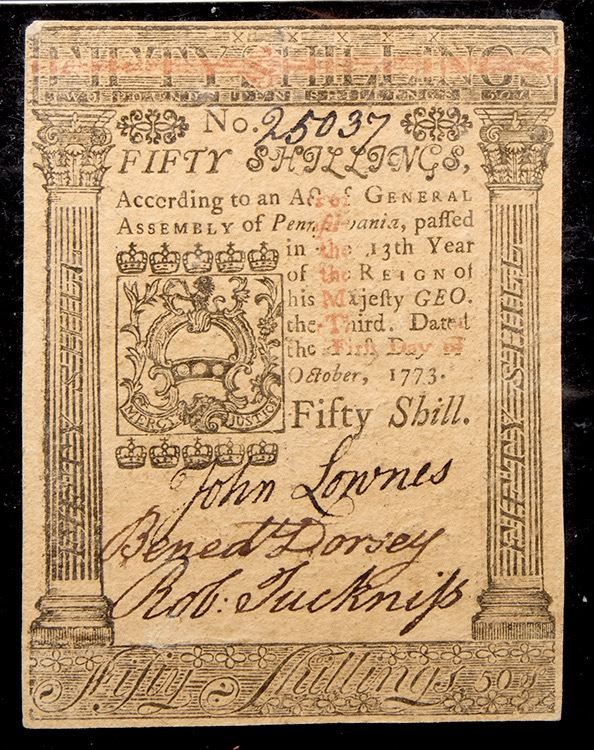 FIFTY SHILLINGS
No. 25037
FIFTY SHILLINGS,
According to an Act of GENERAL
ASSEMBLY of Pennſylvania, paſſed
in the 13th Year
of the REIGN of
his Majeſty GEO.
the Third. Dated
the Firſt Day of
October, 1773.
MERCY JUSTICE
Fifty Shill.
John Lownes
Bened Dorsey
Rob: Tuckniſs
FIFTY SHILL
FIFTY SHILL
Fifty Shillings 50s